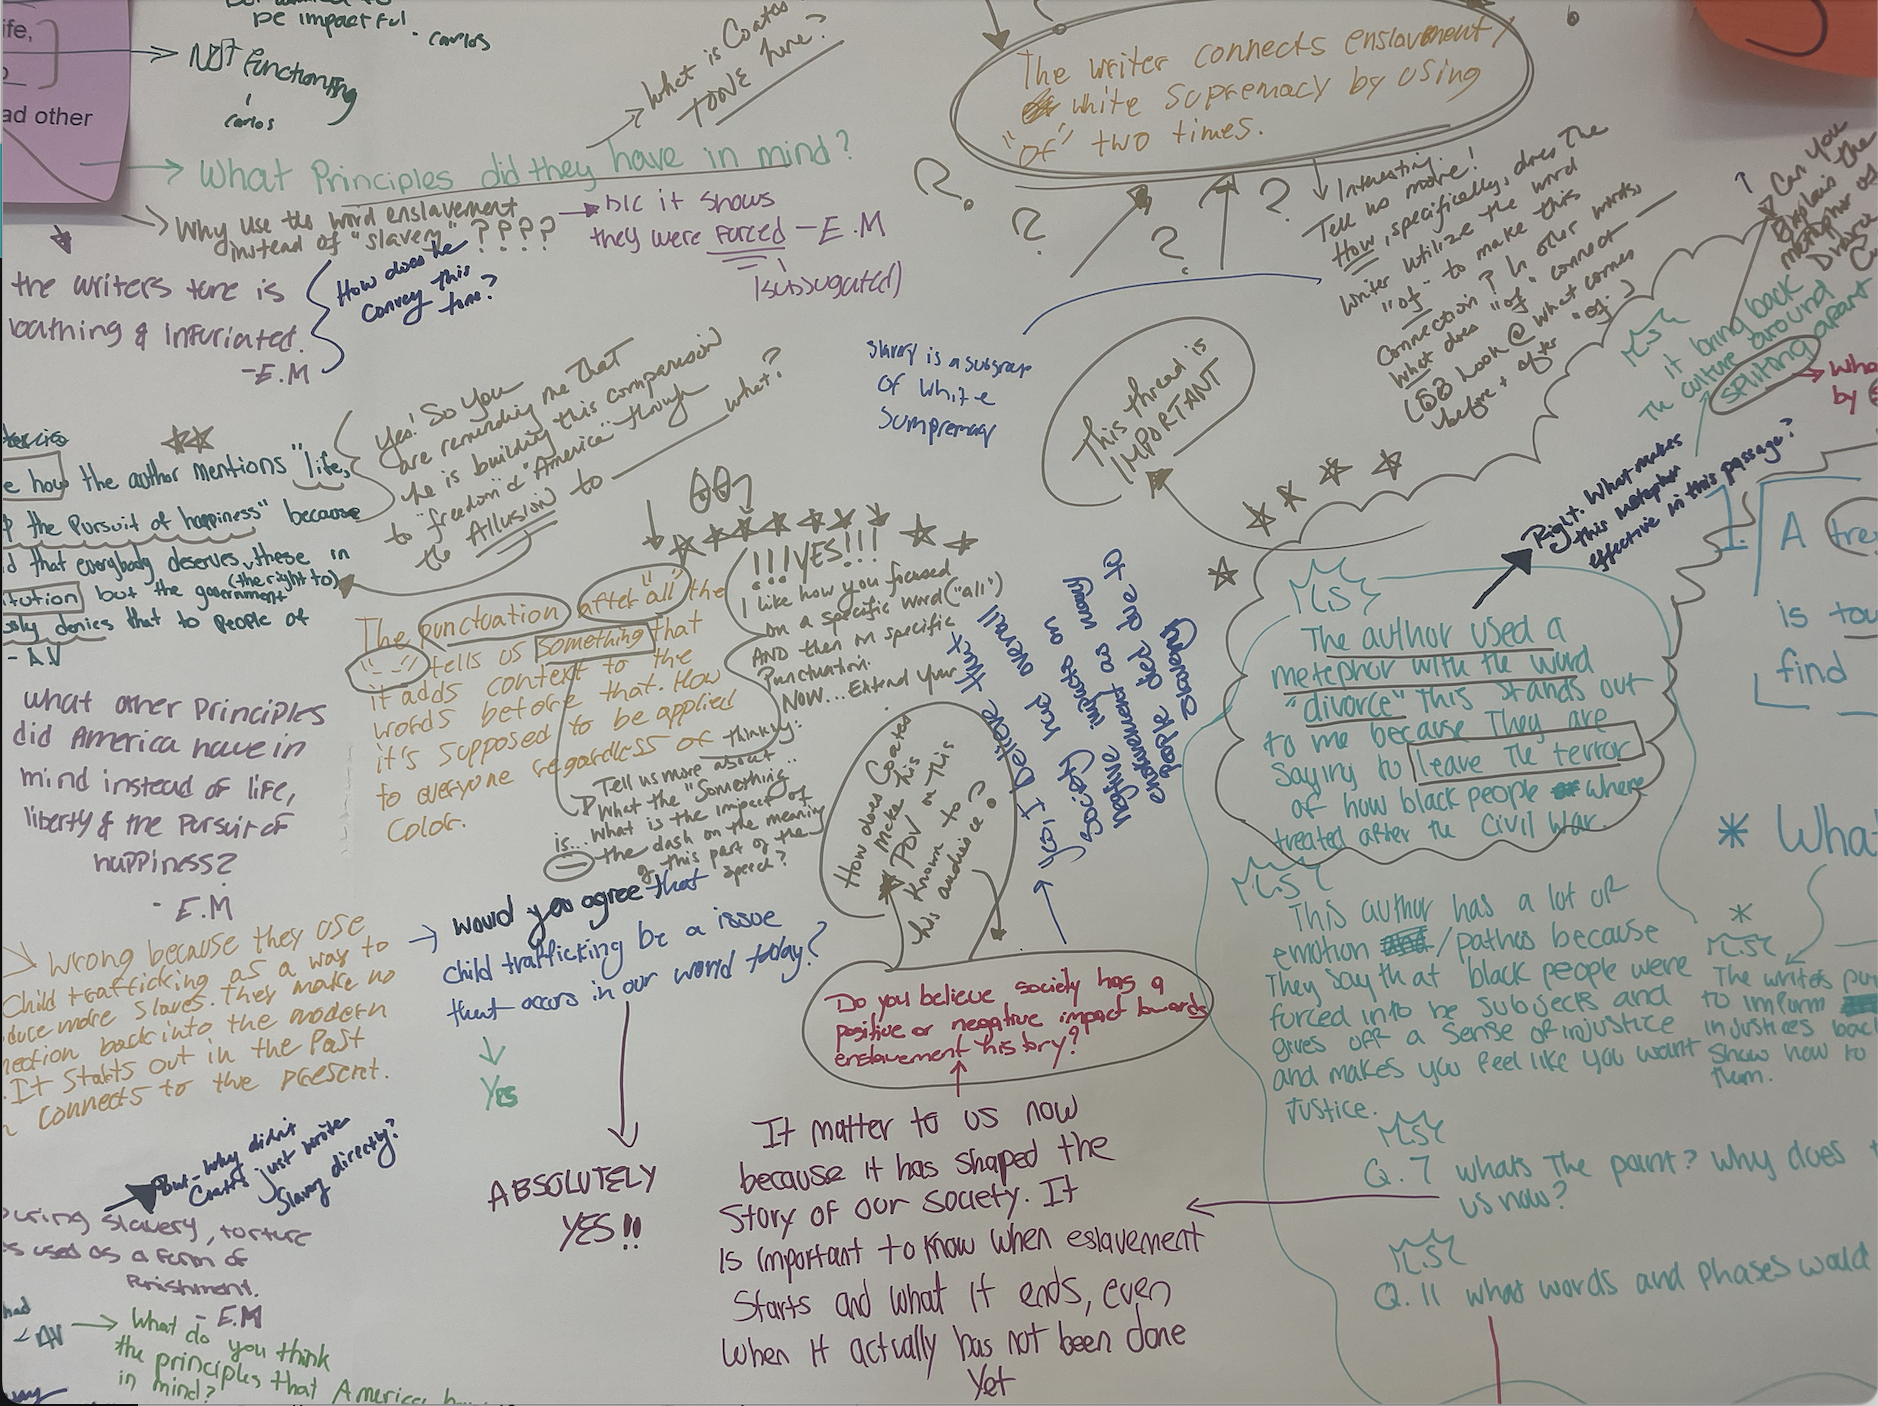 be impactful.
Carlos
NOT functioning
Carlos
ife,
ad other
What is Coates'
TONE here?
What Principles did they have in mind?
Why use the word enslavement
instead of "slavery" ????
b/c it shows
they were forced - E.M
(subjugated)
the writers tone is
loathing & infuriated.
- E.M
How does he
convey this
tone?
The writer connects enslavement/
white supremacy by using
"of" two times.
? ? ? ?
Interesting.
Tell us more!
How, specifically, does the
writer utilize the word
"of" to make this
connection? In other words,
what does "of" connect
Look @ what comes
before + after "of".)
Slavery is a subgroup
of white
Sumpremacy
This thread is
IMPORTANT
Can you
explain the
metaphor of
M.S
it bring back
The culture around
spliting apart
who
by
Yes! So you
are reminding me that
he is building this comparison
to "freedom" & "America" through
the Allusion to ____ what?
e how the author mentions "life,
the Pursuit of happiness" because
d that everybody deserves these in
(the right to)
tution but the government
denies that to people of
- AV
The punctuation after "all" the
"—" tells us something that
it adds context to the
words before that. How
it's supposed to be applied
to everyone regardless of
color.
!!!YES!!!
I like how you focused
on a specific word ("all")
AND then on specific
Punctuation.
NOW... Extend your
thinking:
Tell us more about
What the "something"
is... what is the impact of
the dash on the meaning
of this part of the
speech?
what other Principles
did America have in
mind instead of life,
liberty & the Pursuit of
happiness?
- E.M
Wrong because they use
Child trafficking as a way to
duce more slaves. They make no
nection back into the modern
. It starts out in the Past
connects to the present.
would you agree that
child trafficking be a issue
that occurs in our world today?
Yes
ABSOLUTELY
YES!!
How does Coates
make this
POV on this
known to
his audience?
Yes, I believe that
society had overall
negative impacts on
enslavement as many
people died due to
slavery
Do you believe society has a
positive or negative impact towards
enslavement history?
It matter to us now
because it has shaped the
Story of our society. It
Is important to know when eslavement
Starts and what it ends, even
when it actually has not been done
Yet
Right. What makes
this metaphor
effective in this passage?
M.S
The author used a
metephor with the word
"divorce" This stands out
to me because They are
Saying to leave the terror
of how black people where
treated after the Civil War.
M.S
This author has a lot of
emotion / pathos because
They say that black people were
forced into be subjects and
gives off a sense of injustice
and makes you feel like you want
Justice.
M.S
Q.7 whats The point? Why does
us now?
M.S
Q.11 what words and phases would
1. A tre
is tou
find
* What
*
M.S
The writers pur
to imform
injustices bac
show how to
them.
But - Why didn't
Coates just write
Slavery directly?
uring slavery, torture
s used as a form of
Punishment.
- E.M
had
- AV
What do you think
the principles that America
in mind?